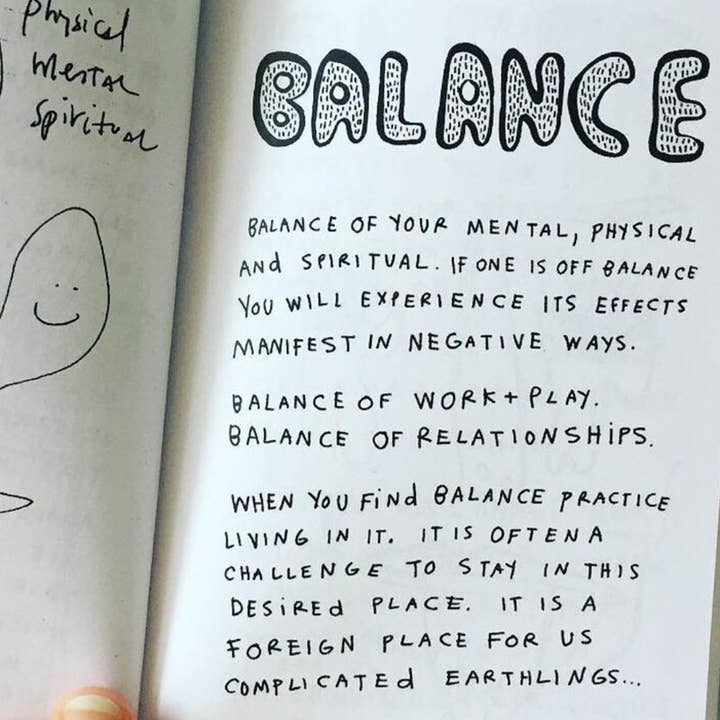 Physical
Mental
Spiritual
BALANCE
BALANCE OF YOUR MENTAL, PHYSICAL
ANd SPIRITUAL. IF ONE IS OFF BALANCE
YOU WILL EXPERIENCE ITS EFFECTS
MANIFEST IN NEGATIVE WAYS.
BALANCE OF WORK + PLAY.
BALANCE OF RELATIONSHiPS.
WHEN YOU FiNd BALANCE PRACTICE
LIVING IN IT. IT IS OFTEN A
CHALLENGE TO STAY IN THIS
DESiREd PLACE. IT IS A
FOREIGN PLACE FOR US
COMPLICATEd EARTHLINGS...